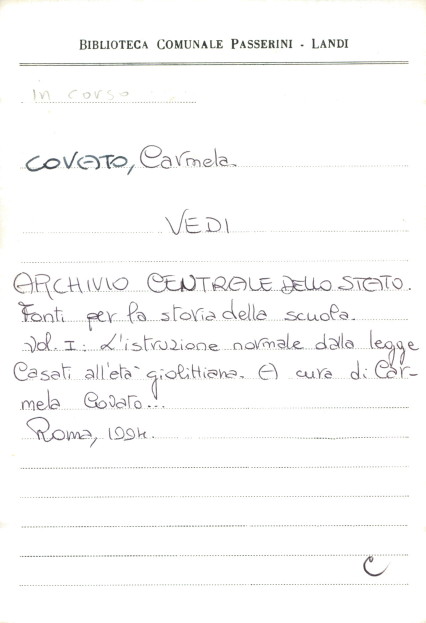 BIBLIOTECA COMUNALE PASSERINI - LANDI
In corso
COVATO, Carmela.
VEDI
ARCHIVIO CENTRALE DELLO STATO.
Fonti per la storia della scuola.
Vol. I: L'istruzione normale dalla legge
Casati all'età giolittiana. A cura di Car-
mela Covato...
Roma, 1994.
C